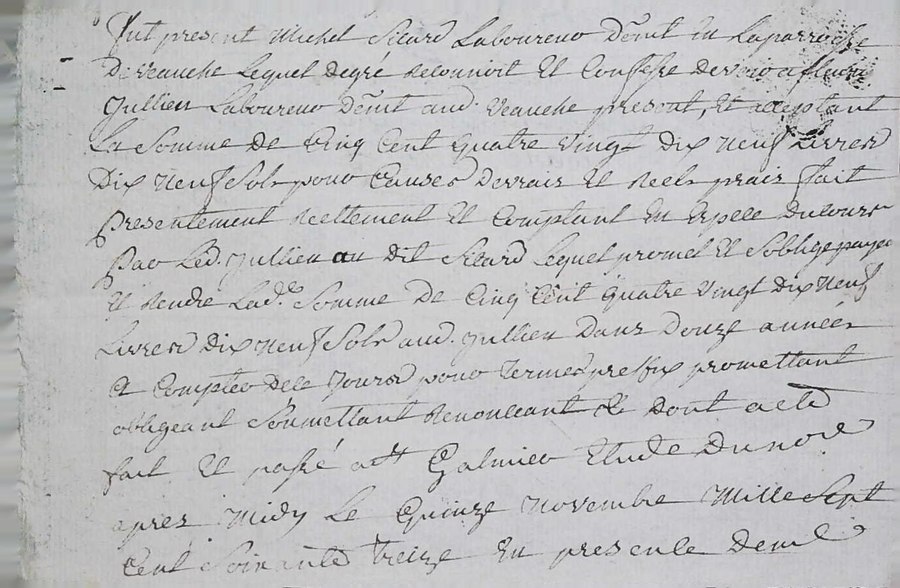 fut present Michel Sicard Laboureur demt en Laparroisse
De Veauche Lequel degré Reconnoit Et Confesse devoir a
Jullien Laboureur demt aud. Veauche present, Et acceptant
La Somme de Cinq Cent quatre vingt dix neuf Livres
Dix neuf Sols pour Causes devrais Et Reels prais fait
presentement Reellement Et Comptant En Espece Ducours
par Led. Jullien au dit Sicard Lequel promet Et Soblige payer
Et Rendre Lade. Somme De Cinq Cent quatre vingt dix neuf
Livres dix neuf Sols aud. Jullien dans douze années
A Compter dece Jours pour termes prefix promettant
obligeant Soumettant Renonceant &c Dont acte
fait Et passé a St Galmier Etude Du nore
apres Midy Le Quinze novembre Mille Sept
Cent Soixante treize En presence De me